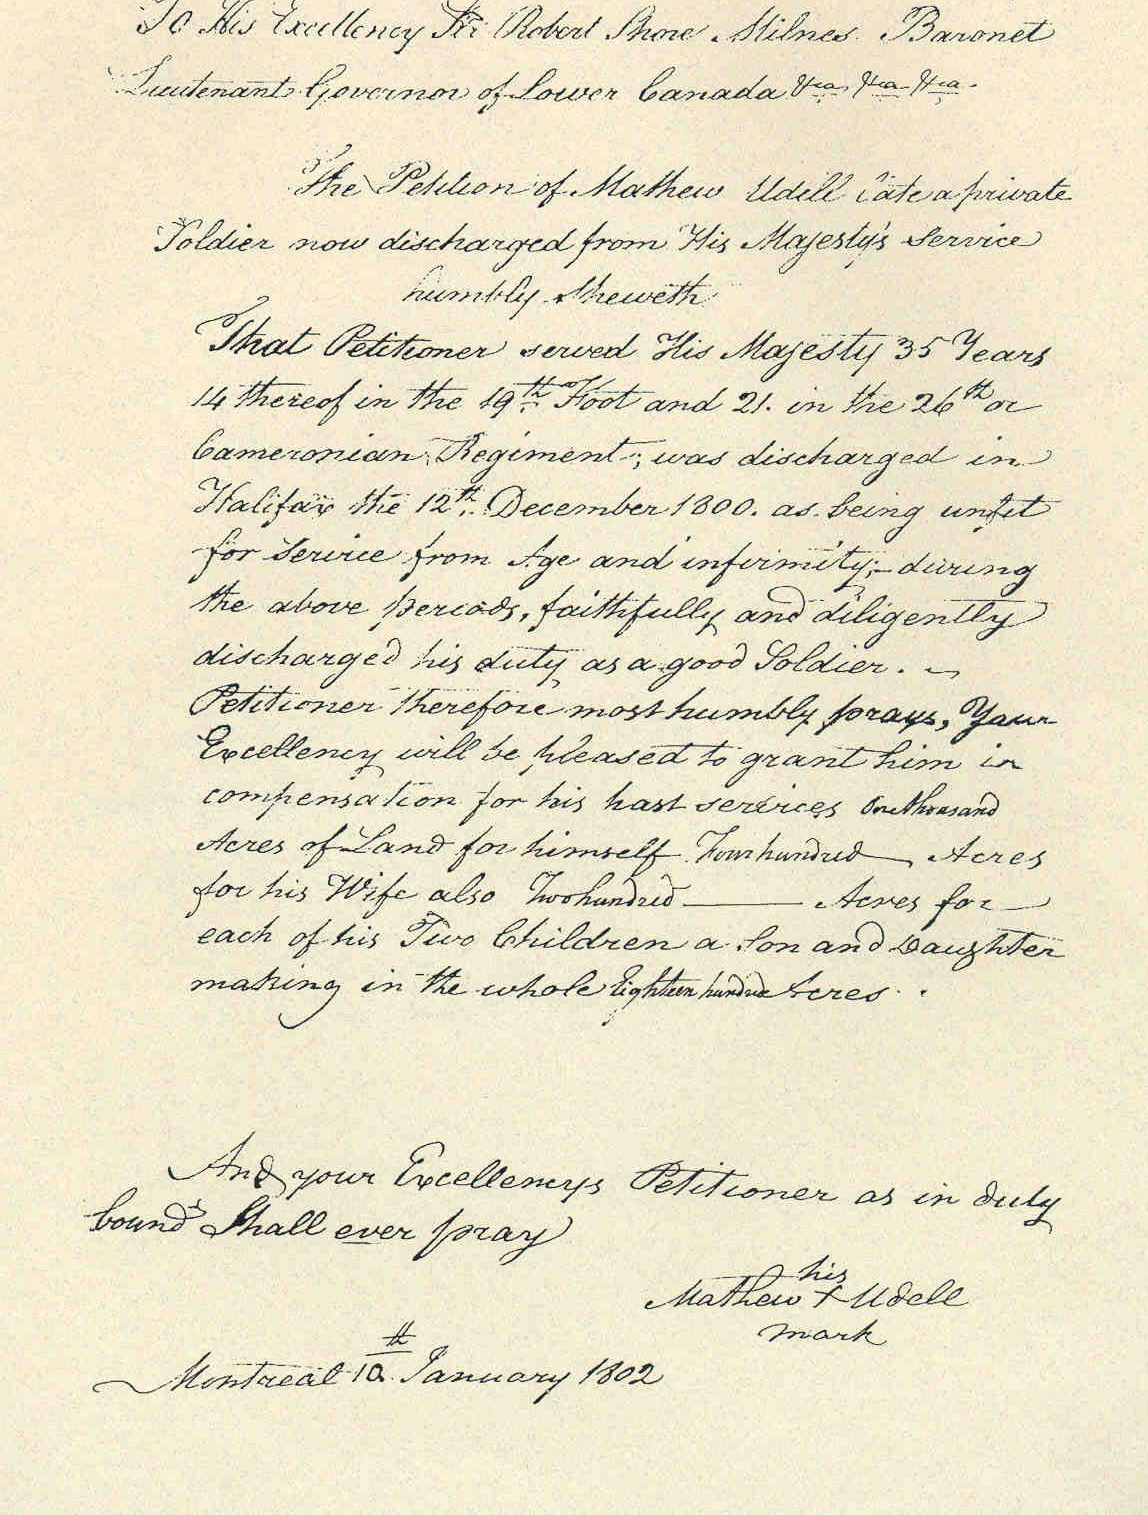 To His Excellency Sir Robert Shore Milnes Baronet
Lieutenant Governor of Lower Canada &ca &ca &ca
The Petition of Mathew Udell Late a private
Soldier now discharged from His Majesty's Service
humbly Sheweth
That Petitioner served His Majesty 35 Years
14 thereof in the 19th Foot and 21. in the 26th or
Cameronian Regiment; was discharged in
Halifax the 12th December 1800. as being unfit
for Service from Age and infirmity;- during
the above periods, faithfully and diligently
discharged his duty as a good Soldier. ~
Petitioner therefore most humbly prays, Your
Excellency will be pleased to grant him in
compensation for his past services One thousand
Acres of Land for himself Four hundred — Acres
for his Wife also Two hundred —— Acres for
each of his Two Children a Son and Daughter
making in the whole Eighteen hundred Acres .
And your Excellencys Petitioner as in duty
bound Shall ever pray
his
Mathew X Udell
mark
Montreal 10th January 1802